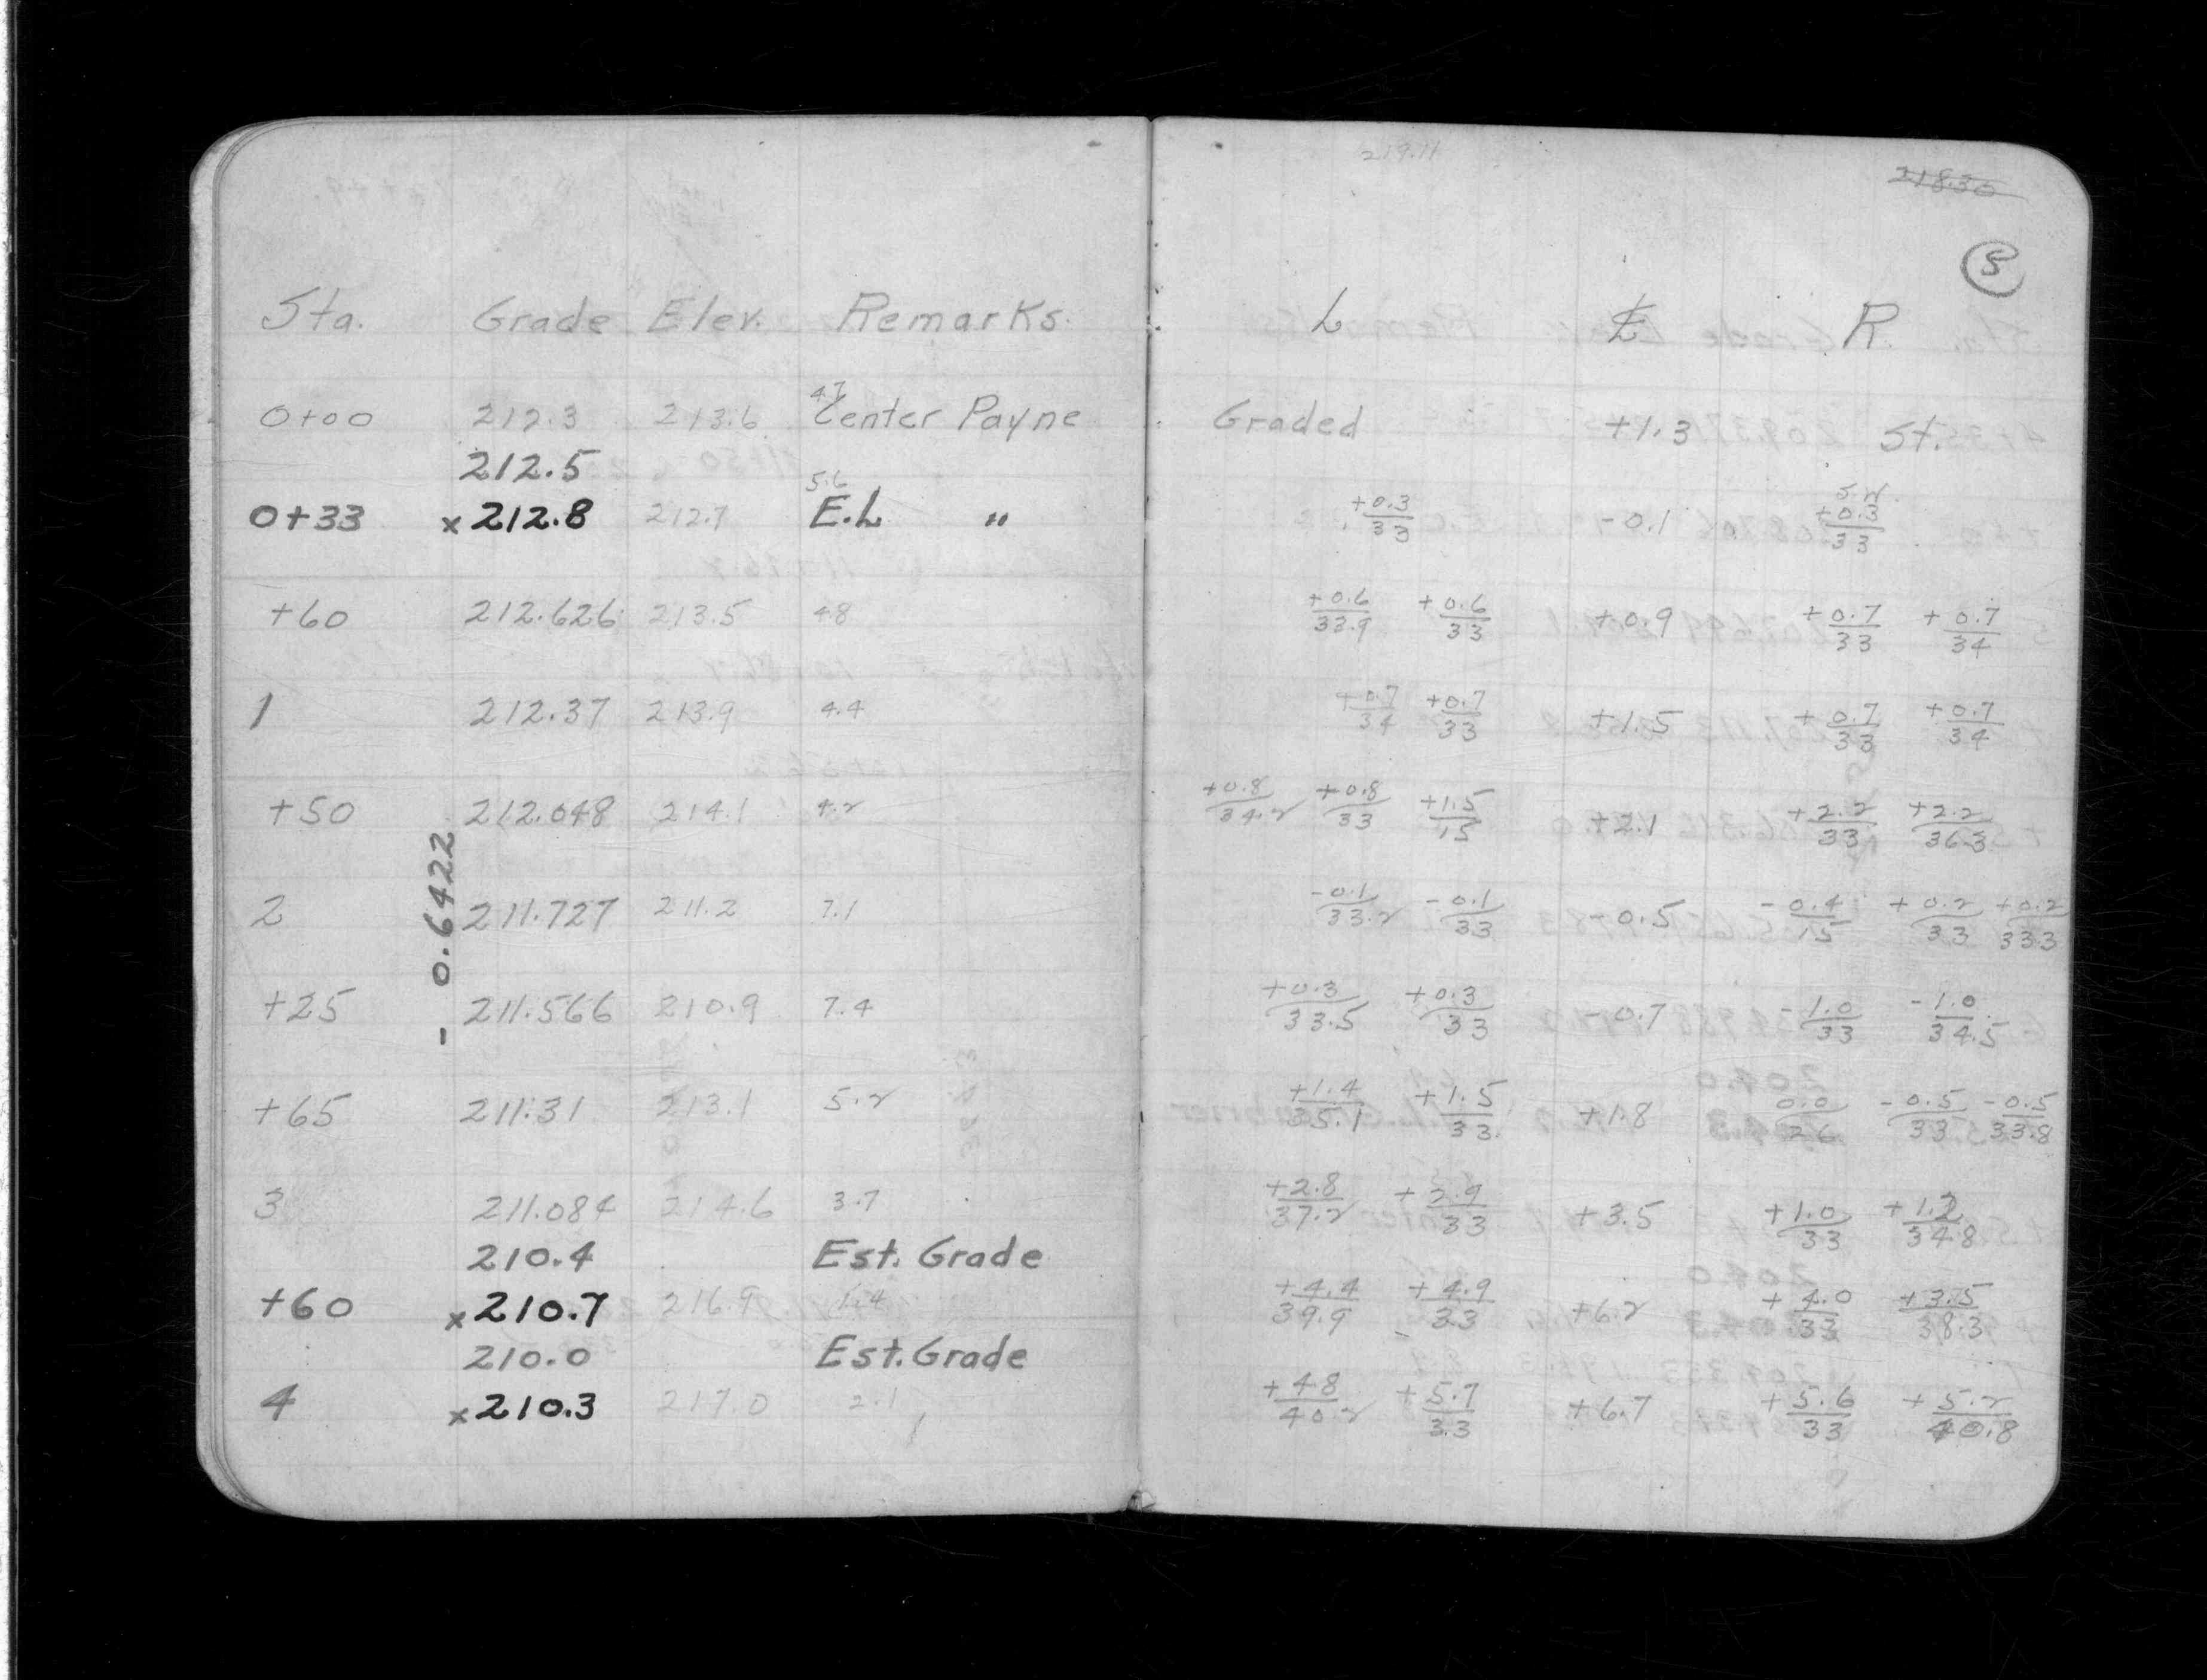 219.11
21830
5
Sta. Grade Elev. Remarks. L ℄ R.
47
0+00 212.3 213.6 Center Payne Graded +1.3 St.
212.5
5.6 5.2
0+33 x 212.8 212.7 E.L " +0.3/33 -0.1 +0.3/33
+60 212.626 213.5 4.8 +0.6/33.9 +0.6/33 +0.9 +0.7/33 +0.7/34
1 212.37 213.9 4.4 +0.7/34 +0.7/33 +1.5 +0.7/33 +0.7/34
+50 212.048 214.1 4.2 +0.8/34.2 +0.8/33 +1.5/15 +2.1 +2.2/33 +2.2/36.3
- 0.6422
2 211.727 211.2 7.1 -0.1/33.2 -0.1/33 -0.5 -0.4/15 +0.2/33 +0.2/33.3
+25 211.566 210.9 7.4 +0.3/33.5 +0.3/33 -0.7 -1.0/33 -1.0/34.5
+65 211.31 213.1 5.2 +1.4/35.1 +1.5/33 +1.8 0.0/26 -0.5/33 -0.5/33.8
3 211.084 214.6 3.7 +2.8/37.2 +2.9/33 +3.5 +1.0/33 +1.2/34.8
210.4 Est. Grade
+60 x 210.7 216.9 1.4 +4.4/39.9 +4.9/33 +6.2 +4.0/33 +3.5/38.3
210.0 Est. Grade
4 x 210.3 217.0 2.1 +4.8/40.2 +5.7/33 +6.7 +5.6/33 +5.2/40.8